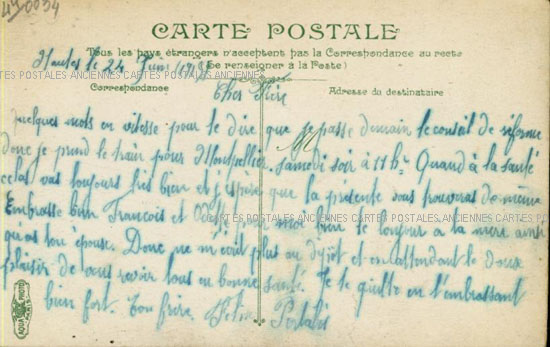 44-0034
CARTE POSTALE
Tous les pays étrangers n'acceptent pas la Correspondance au recto
(Se renseigner à la Poste)
le 24 Juin
CARTES POSTALES ANCIENNES CARTES POSTALES ANCIENNES CARTES POSTALES ANCIENNES CARTES POSTALES ANCIENNES
Correspondance
Adresse du destinataire
Cher
quelques mots en vitesse pour te dire que je passe demain le conseil de réforme
donc je prend le train pour Montpellier samedi soir à 11 h. Quand à la santé
cela vas toujours très bien et j'espère que la présente vous trouveras de même
Embrasse bien Francois et pour moi bien le bonjour a ta mère ainsi
CARTES POSTALES ANCIENNES CARTES POSTALES ANCIENNES CARTES POSTALES ANCIENNES CARTES POSTALES
qu'as ton épouse. Donc ne m'écrit plus au dépôt et en attendant le doux
plaisir de vous revoir tous en bonne santé. Je te quitte en t'embrassant
bien fort. Ton frère
AQUA PHOTO
PARIS